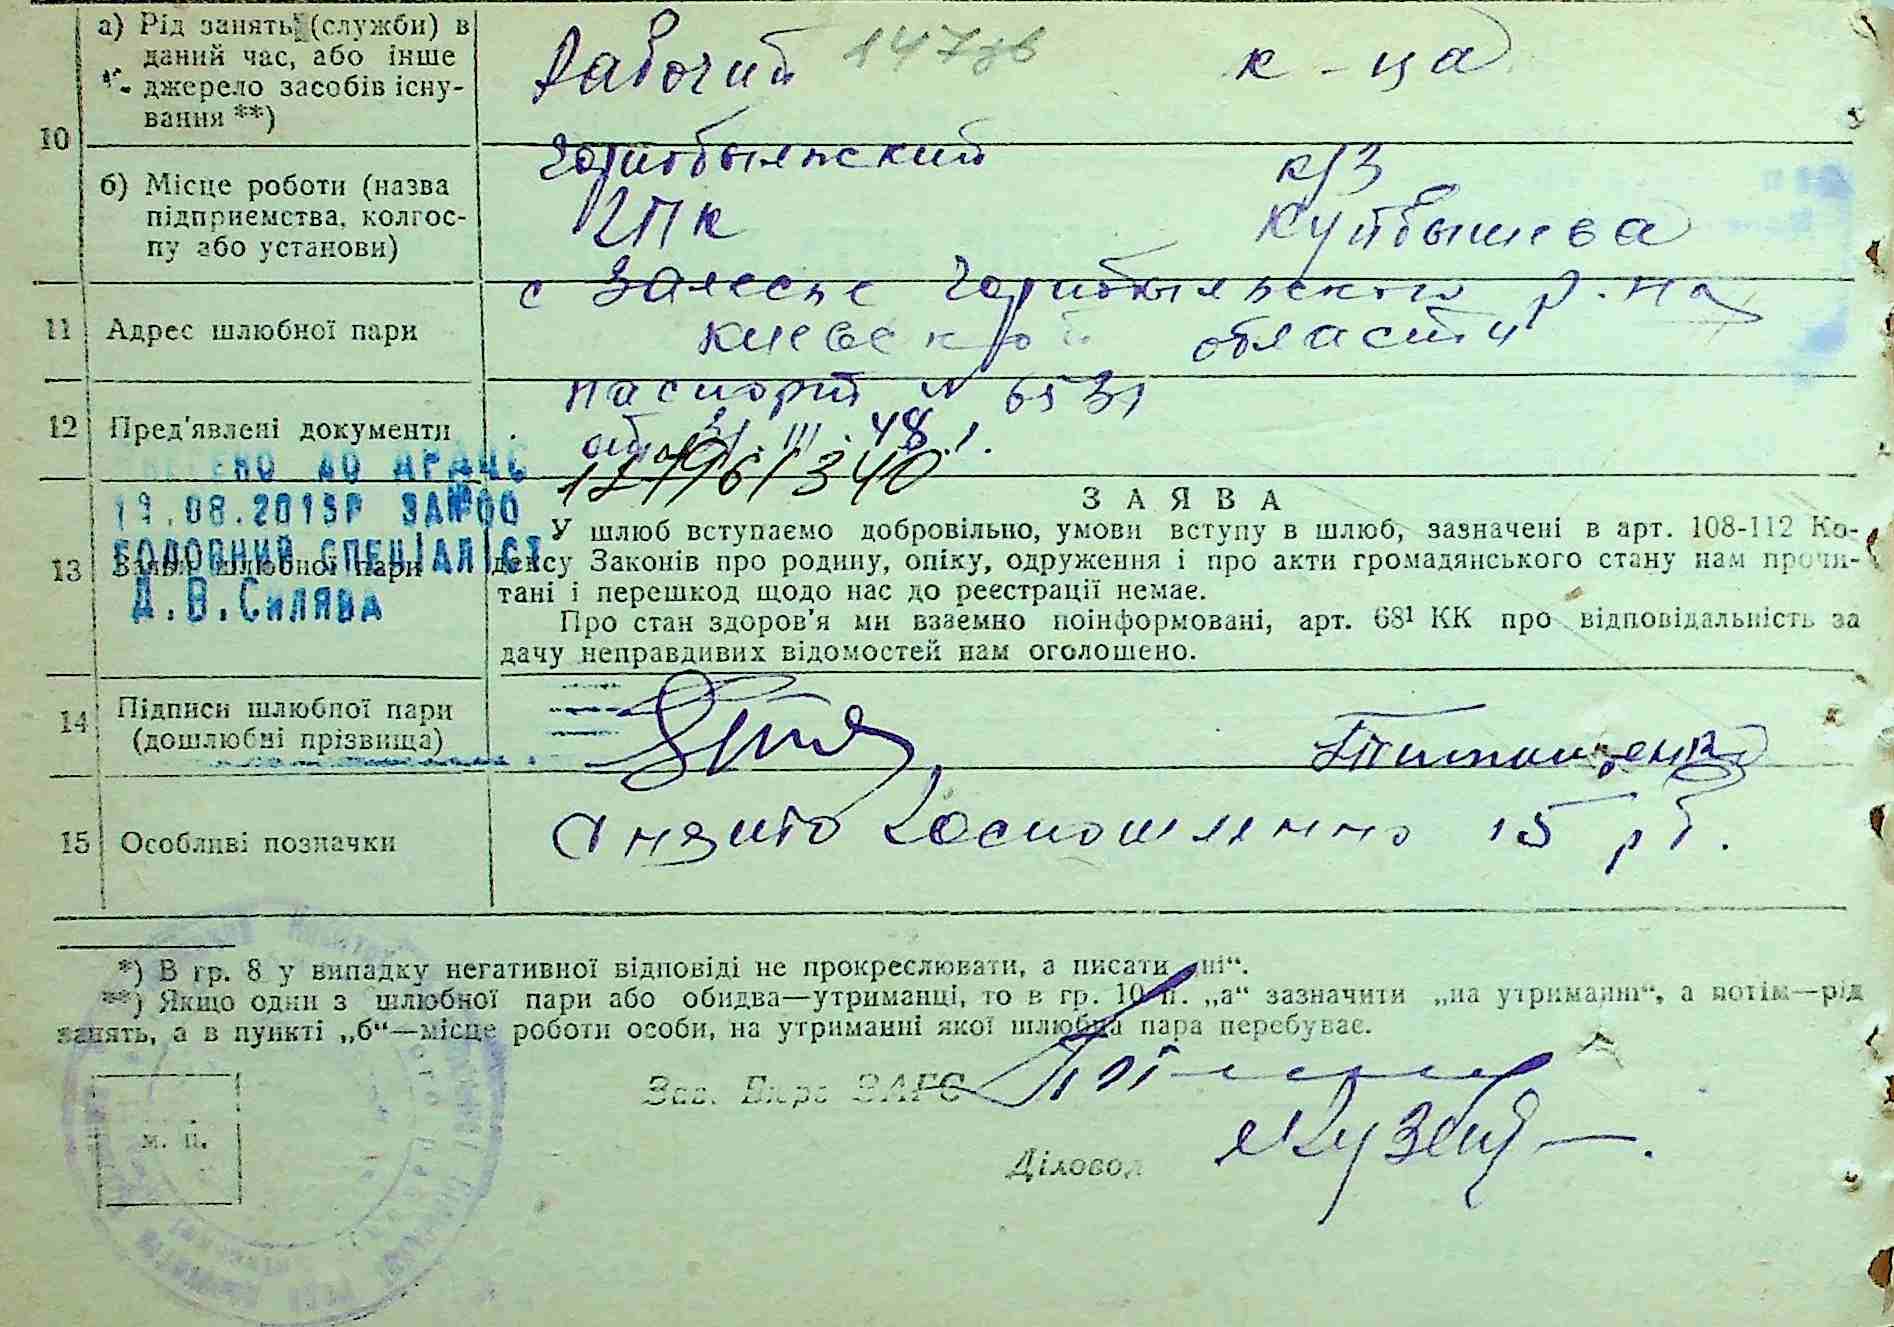 10
а) Рід занять (служби) в
даний час, або інше
джерело засобів існу-
вання **)
Рабочий 147 к-ца
б) Місце роботи (назва
підприємства, колгос-
пу або установи)
Чернобыльский к/з
РПК Куйбышева
11 Адрес шлюбної пари
с Залесье Чернобыльского р-на
Киевской области
12 Пред'явлені документи
паспорт № 6531
31.III.48
ВНЕСЕНО ДО ДРАЦС
19.08.2019Р ЗА №00
ГОЛОВНИЙ СПЕЦІАЛІСТ
Д.В.Силява
12796/340
13 Заява шлюбної пари
ЗАЯВА
У шлюб вступаємо добровільно, умови вступу в шлюб, зазначені в арт. 108-112 Ко-
дексу Законів про родину, опіку, одруження і про акти громадянського стану нам прочи-
тані і перешкод щодо нас до реєстрації немає.
Про стан здоров'я ми взаємно поінформовані, арт. 68¹ КК про відповідальність за
дачу неправдивих відомостей нам оголошено.
14 Підписи шлюбної пари
(дошлюбні прізвища)
Тимошенко
15 Особливі позначки
Снято Госпошлинно 15 рб.
*) В гр. 8 у випадку негативної відповіді не прокреслювати, а писати „ні“.
**) Якщо один з шлюбної пари або обидва—утриманці, то в гр. 10 п. „а“ зазначити „на утриманні“, а потім—рід
занять, а в пункті „б“—місце роботи особи, на утриманні якої шлюбна пара перебуває.
Зав. Бюро ЗАГС
м. п.
Діловод